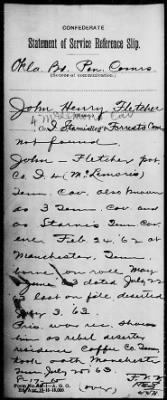 CONFEDERATE
Statement of Service Reference Slip.
Okla. Bd. Pen. Comrs.
(Source of communication.)
John Henry Fletcher
4" Cav
Co. I Starnes Forrests Com
not found
John – Fletcher pvt.
Co. I 4 (McLemore's)
Tenn. Cav. also known
as 3 Tenn. Cav and
as Starnes Tenn Cav
enr. Feb 24, '62 at
Manchester, Tenn.
borne on roll May
June '63 dated July 22
'63 last on file deserted
July 3 '63.
Pris. war rec. shows
him as rebel deserter
residence Coffee Co. Tenn
took oath Manchester
Tenn July 25 '63
(over)